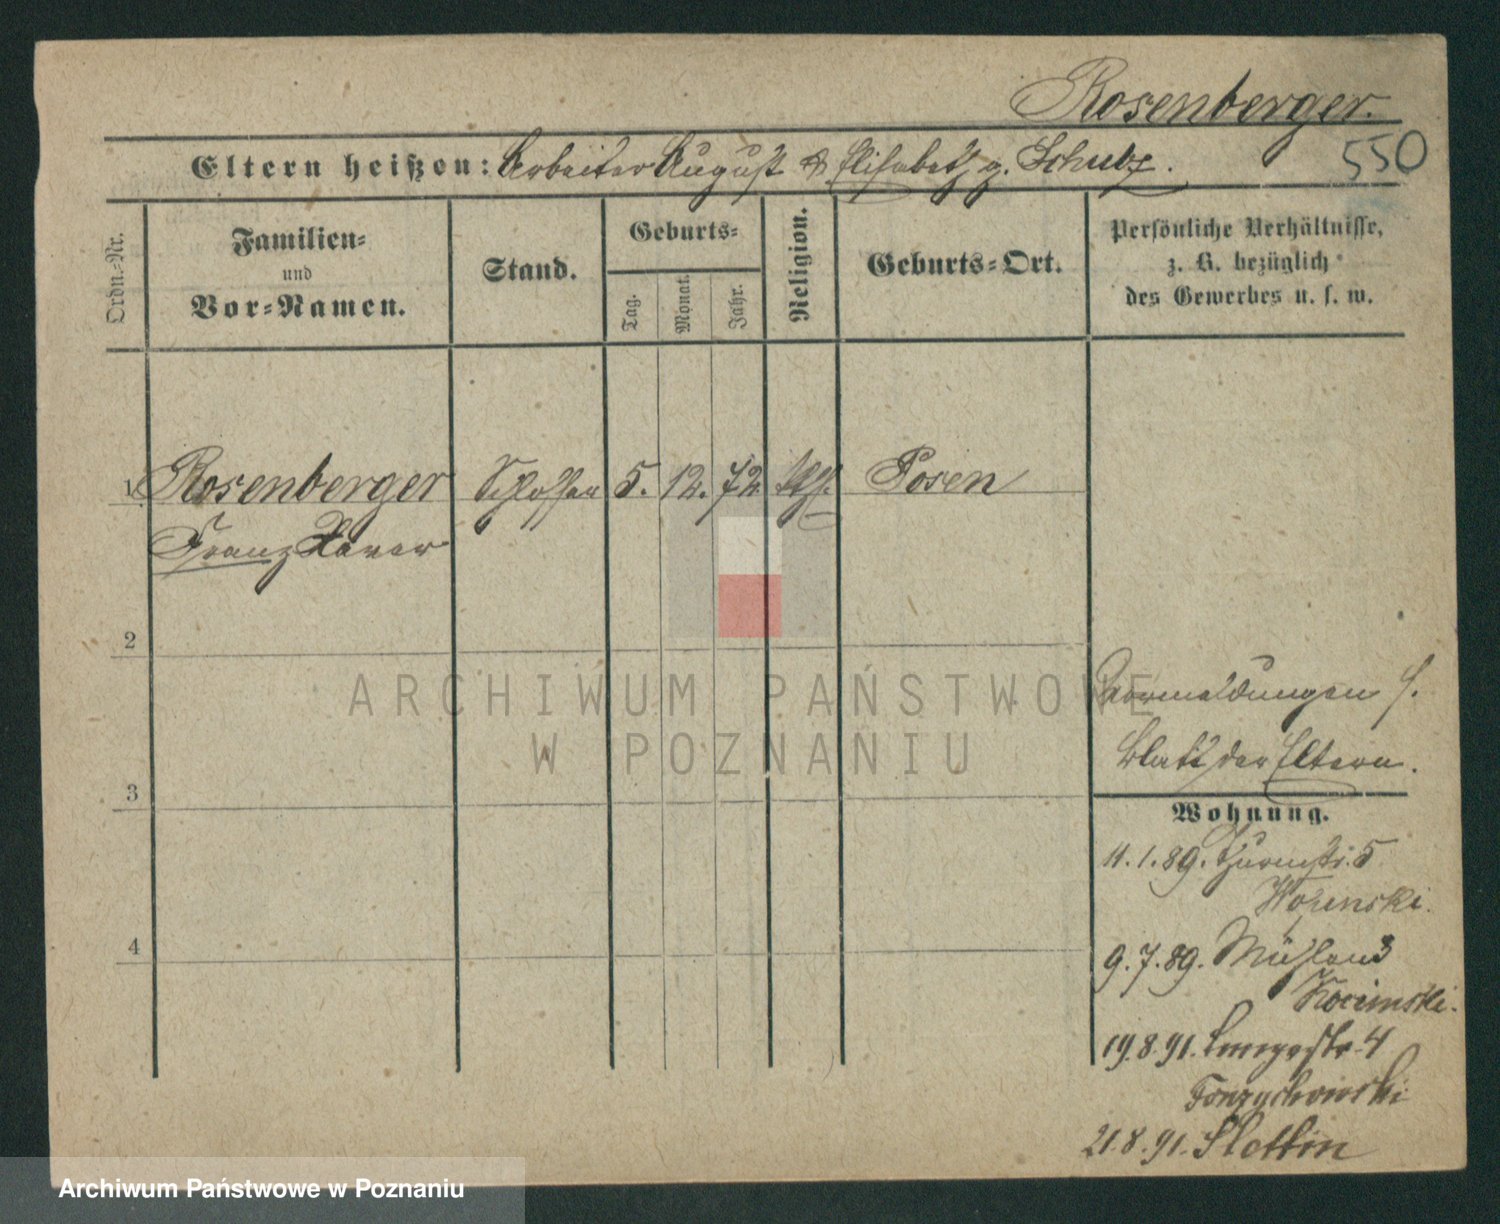 Rosenberger.
550
Eltern heißen: Arbeiter August & Elisabeth g. Schulz.
Ordn.-Nr.
Familien-
und
Vor-Namen.
Stand.
Geburts-
Tag.
Monat.
Jahr.
Religion.
Geburts-Ort.
Persönliche Verhältnisse,
z. B. bezüglich
des Gewerbes u. s. w.
1 Rosenberger Schlosser 5. 12. 72 kth. Posen
Franz Xaver
2
3
4
ARCHIWUM PAŃSTWOWE
W POZNANIU
Vormeldungen s.
Blatt der Eltern.
Wohnung.
11.1.89. Thurmstr. 5
9.7.89. Mühlen 3
19.8.91. Langestr. 4
21.8.91. Stettin
Archiwum Państwowe w Poznaniu